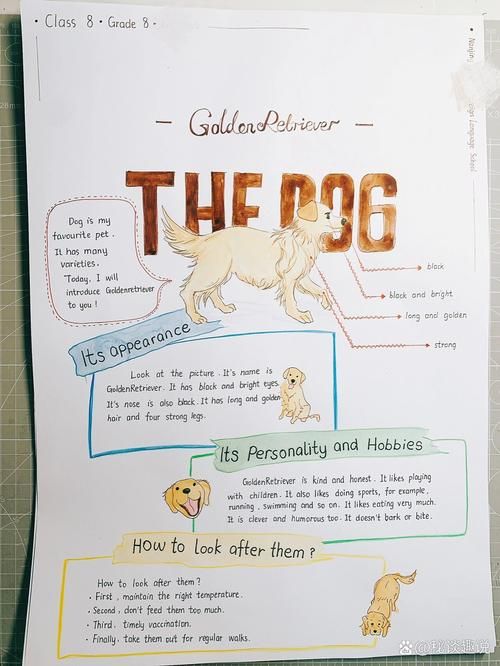 · Class 8 · Grade 8 ·
Language School
— GoldenRetriever —
THE DOG
Dog is my
favourite pet.
It has many
varieties.
Today, I will
introduce Goldenretriever
to you!
black
black and bright
long and golden
strong
Its appearance
Look at the picture. It's name is
GoldenRetriever. It has black and bright eyes.
It's nose is also black. It has long and golden
hair and four strong legs.
Its Personality and Hobbies
GoldenRetriever is kind and honest. It likes playing
with children. It also likes doing sports, for example,
running, swimming and so on. It likes eating very much.
It is clever and humorous too. It doesn't bark or bite.
How to look after them?
How to look after them?
· First, maintain the right temperature.
· Second, don't feed them too much.
· Third, timely vaccination.
· Finally, take them out for regular walks.